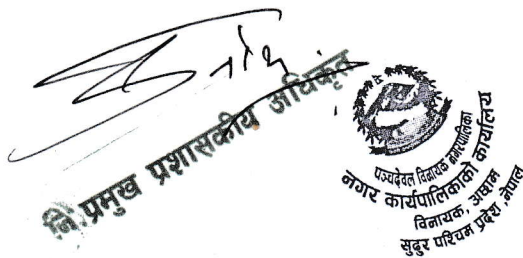 नि.प्रमुख प्रशासकीय अधिकृत
पञ्चदेवल विनायक नगरपालिका
नगर कार्यपालिकाको कार्यालय
विनायक, अछाम
सुदूर पश्चिम प्रदेश, नेपाल